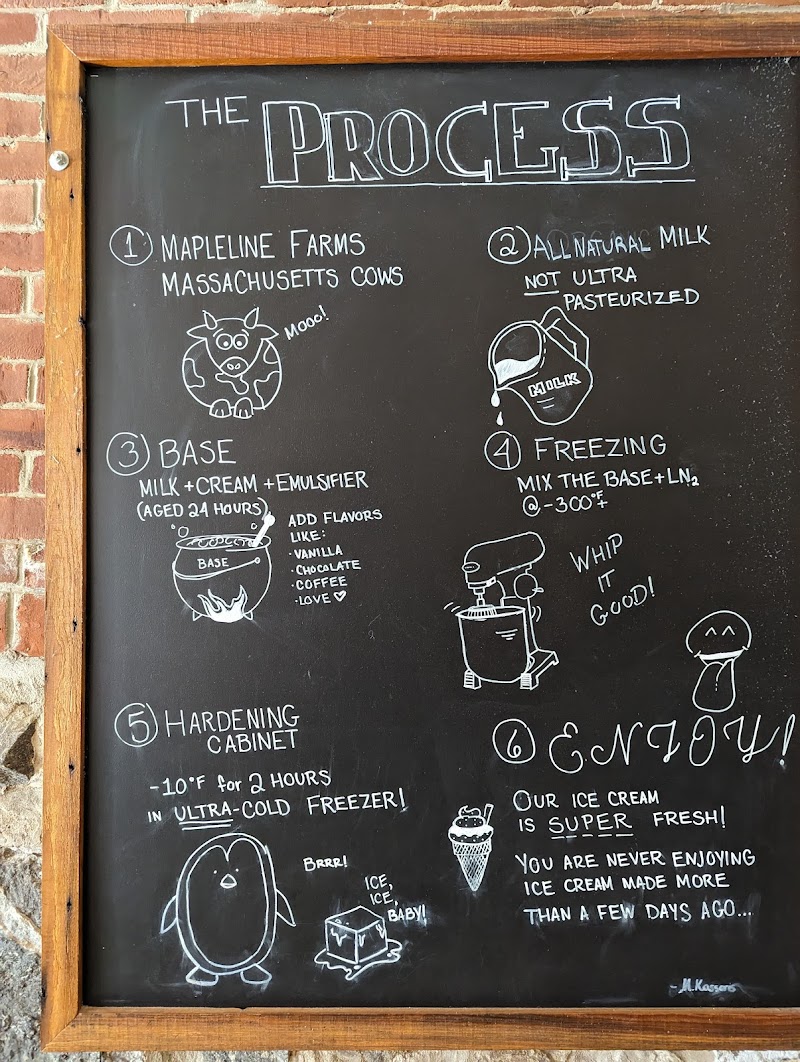 THE PROCESS
1 MAPLELINE FARMS
MASSACHUSETTS COWS
MOOO!
2 ALL NATURAL MILK
NOT ULTRA
PASTEURIZED
MILK
3 BASE
MILK + CREAM + EMULSIFIER
(AGED 24 HOURS)
BASE
ADD FLAVORS
LIKE:
· VANILLA
· CHOCOLATE
· COFFEE
· LOVE ♡
4 FREEZING
MIX THE BASE + LN₂
@ -300°F
WHIP
IT
GOOD!
5 HARDENING
CABINET
-10°F for 2 HOURS
IN ULTRA-COLD FREEZER!
BRRR!
ICE,
ICE,
BABY!
6 ENJOY!
OUR ICE CREAM
IS SUPER FRESH!
YOU ARE NEVER ENJOYING
ICE CREAM MADE MORE
THAN A FEW DAYS AGO...